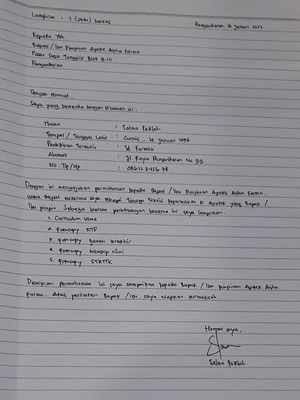 Lampiran : 1 (satu) berkas
Pangandaran, 14 Januari 2022
Kepada Yth
Bapak / Ibu Pimpinan Apotek Aisha Farma
Pasar Desa Tunggilis Blok B-10
Pangandaran
Dengan Hormat,
Saya yang bertanda tangan dibawah ini :
Nama : Salma
Tempat / Tanggal Lahir : Ciamis, 14 Januari 1999
Pendidikan Terakhir : D3 Farmasi
Alamat : Jl. Raya Pangandaran No
No. Tlp / Hp : 08612345678
Dengan ini mengajukan permohonan kepada Bapak / Ibu Pimpinan Apotek Aisha Farma,
untuk dapat Tenaga Teknis Kefarmasian di Apotek yang Bapak /
Ibu pimpin. Sebagai bahan pertimbangan bersama ini saya lampirkan :
1. Curiculum Vitae
2. Fotocopy KTP
3. Fotocopy Ijazah terakhir
4. Fotocopy transkip nilai
5. Fotocopy STRTTK
Demikian permohonan ini saya sampaikan kepada Bapak / Ibu Pimpinan Apotek Aisha
Farma. Atas perhatian Bapak / Ibu, saya ucapkan terimakasih.
Hormat saya,
Salma